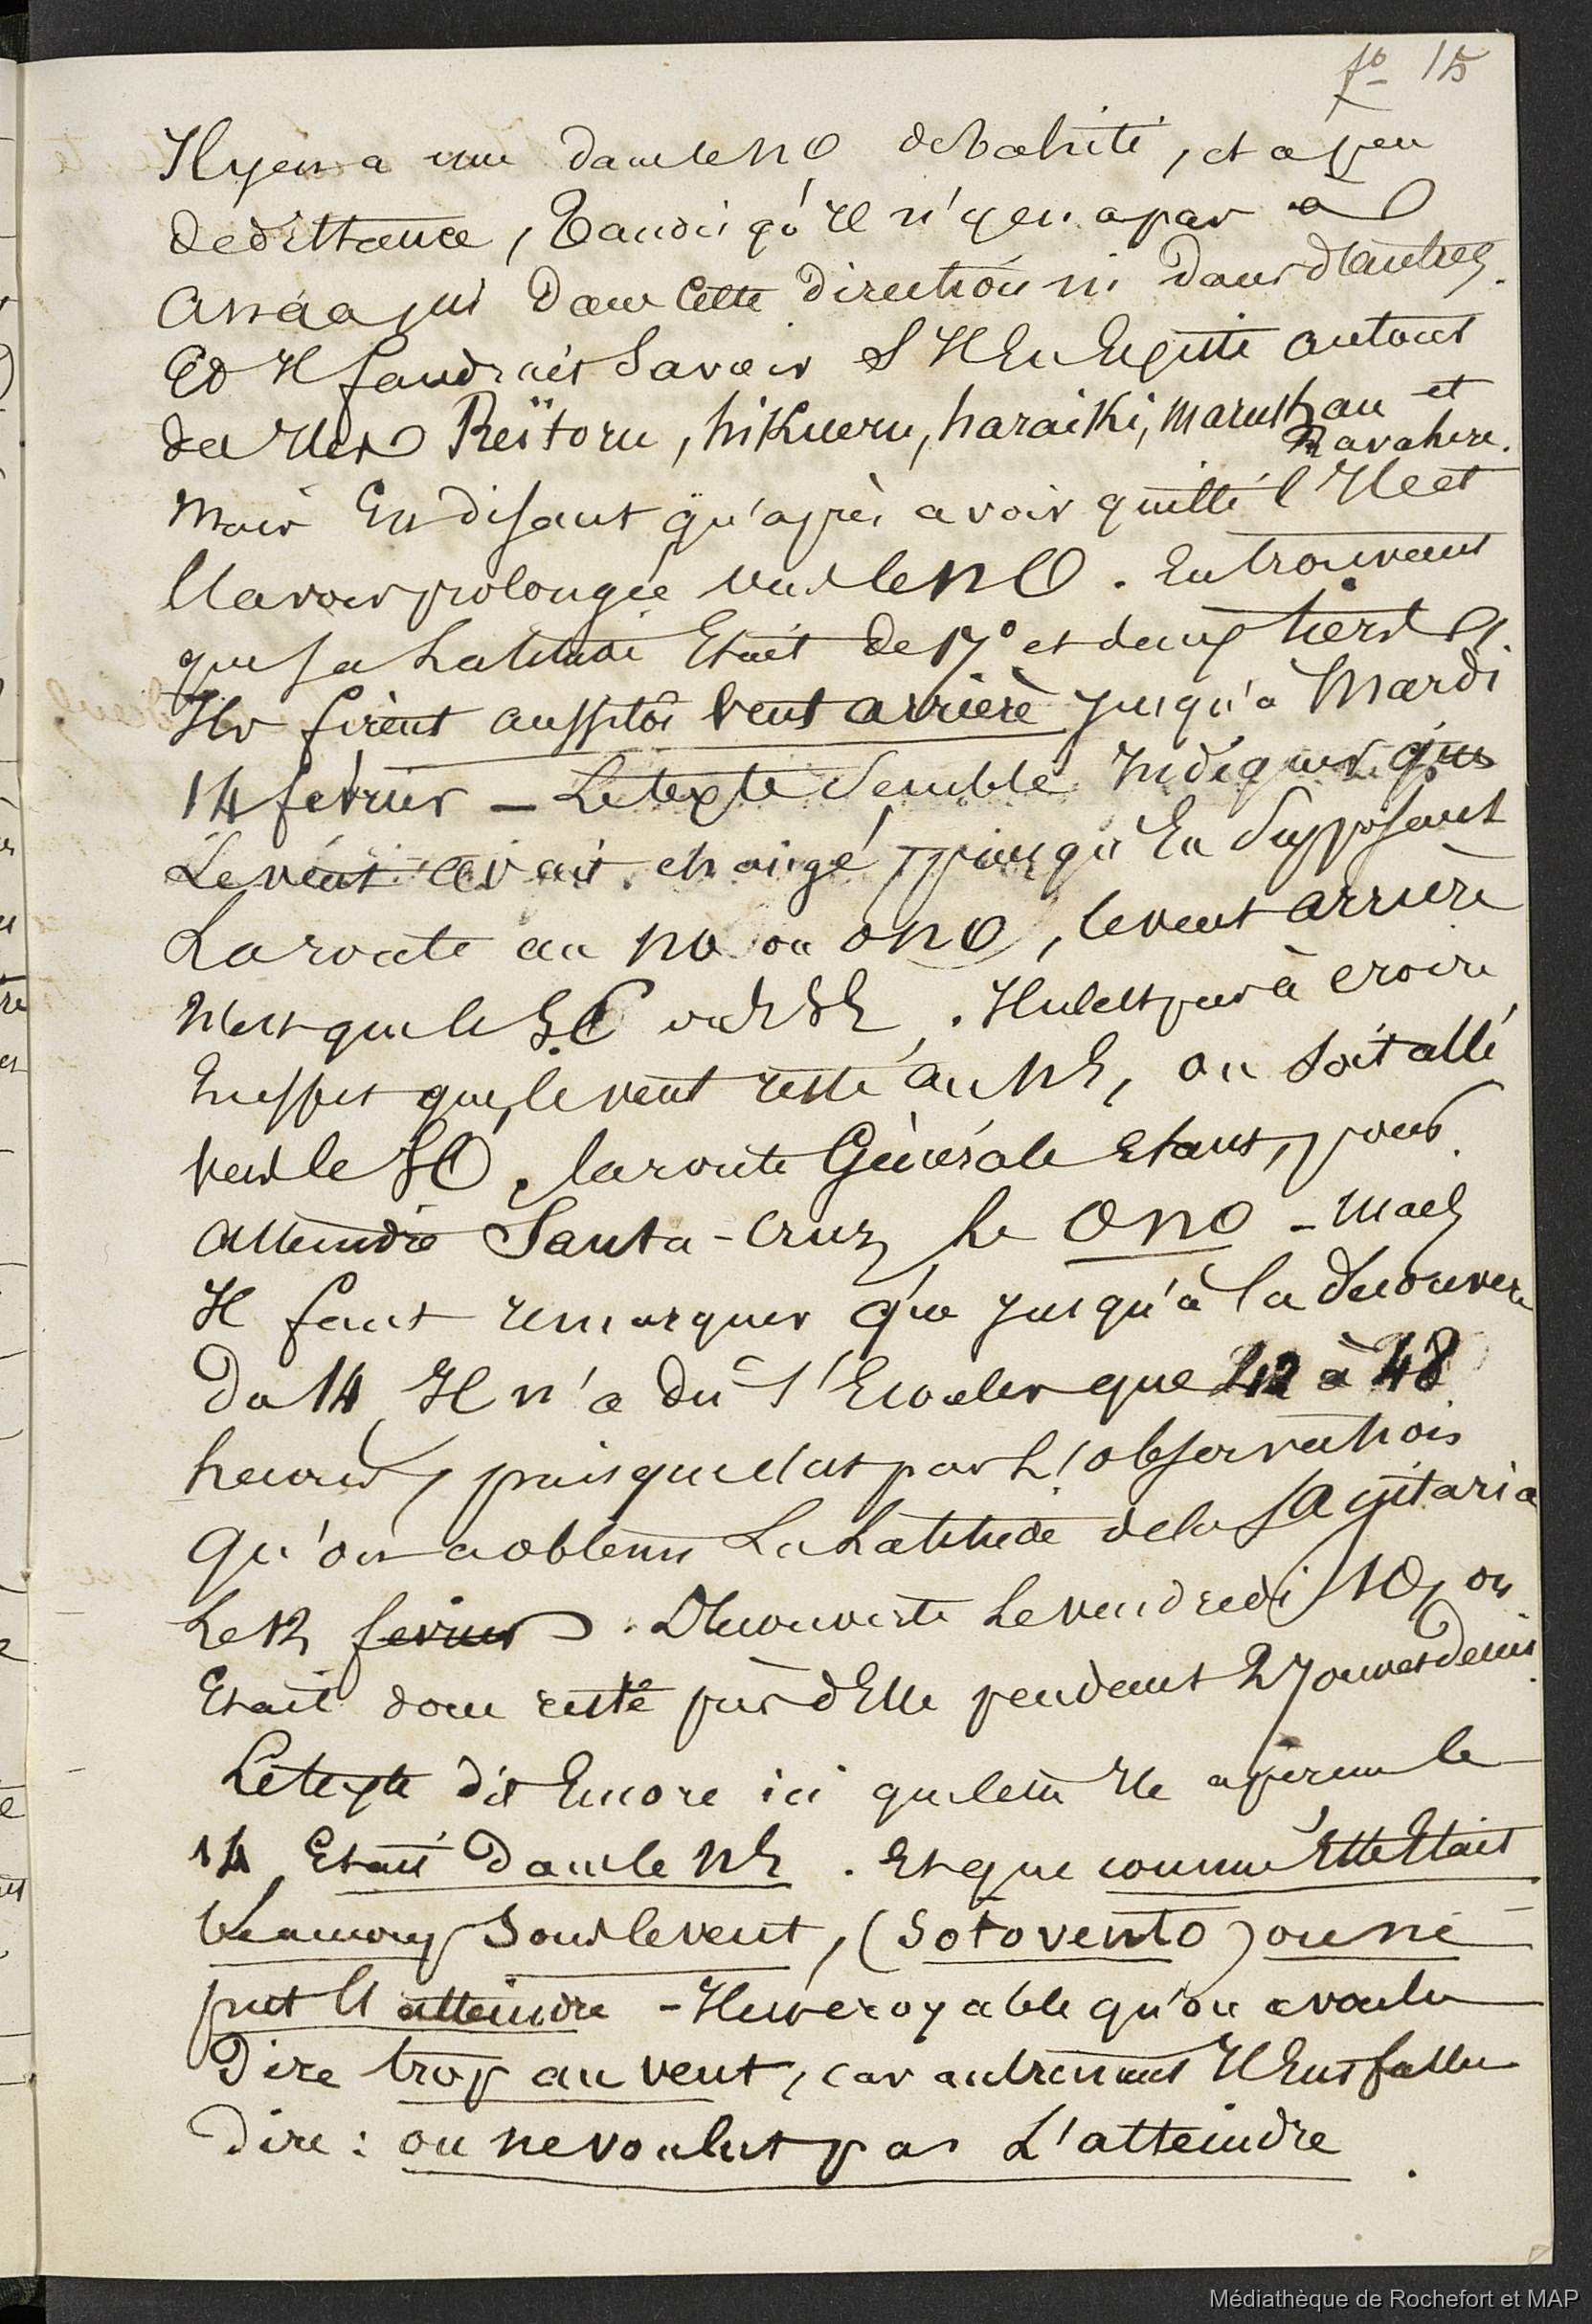 fo 15
Il y en a une dans le NO de Tahiti, et a peu
de distance, Tandis qu'Il n'y en a pas à
Anaa qui Dans Cette direction ni Dans d'autres.
Et Il faudrait Savoir S'Il En Existe autour
des Iles Reïtoru, hikueru, haraiki, marutéau et
Ravahere.
Mais En disant qu'après avoir quitté l'Ile et
l'avoir prolongée vers le NO. En trouvant
que sa Latitude Etait de 17° et deux tiers
Ils firent aussitôt vent arrière jusqu'à Mardi
14 fevrier – Le texte Semble Indiquer que
Le vent avait changé, puisqu'En Supposant
La route au NO ou ONO, le vent arrière
N'est que le SE ou ESE. Il n'est pas à croire
En effet que le vent resté au NE, on soit allé
vers le SO, la route Générale etant, pour
atteindre Santa-Cruz, le ONO – Mais
Il faut remarquer que jusqu'à la découverte
Du 14 Il n'a dû s'Ecouler que 42 à 48
heures, puisque c'est par L'observation
Qu'on a obtenu La Latitude de la Sagitaria
Le 12 fevrier. Découverte Le vendredi 10, on
Etait donc resté près d'Elle pendant 2 Jours et demi.
Le texte dit Encore ici que cette Ile aperçue le
14 Etait Dans le NE. Et que comme Elle Etait
beaucoup Sous le vent, (Sotovento) on ne
put l'atteindre – Il est croyable qu'on a voulu
Dire trop au vent, car autrement Il Eut fallu
Dire : on ne voulut pas L'atteindre.
Médiathèque de Rochefort et MAP